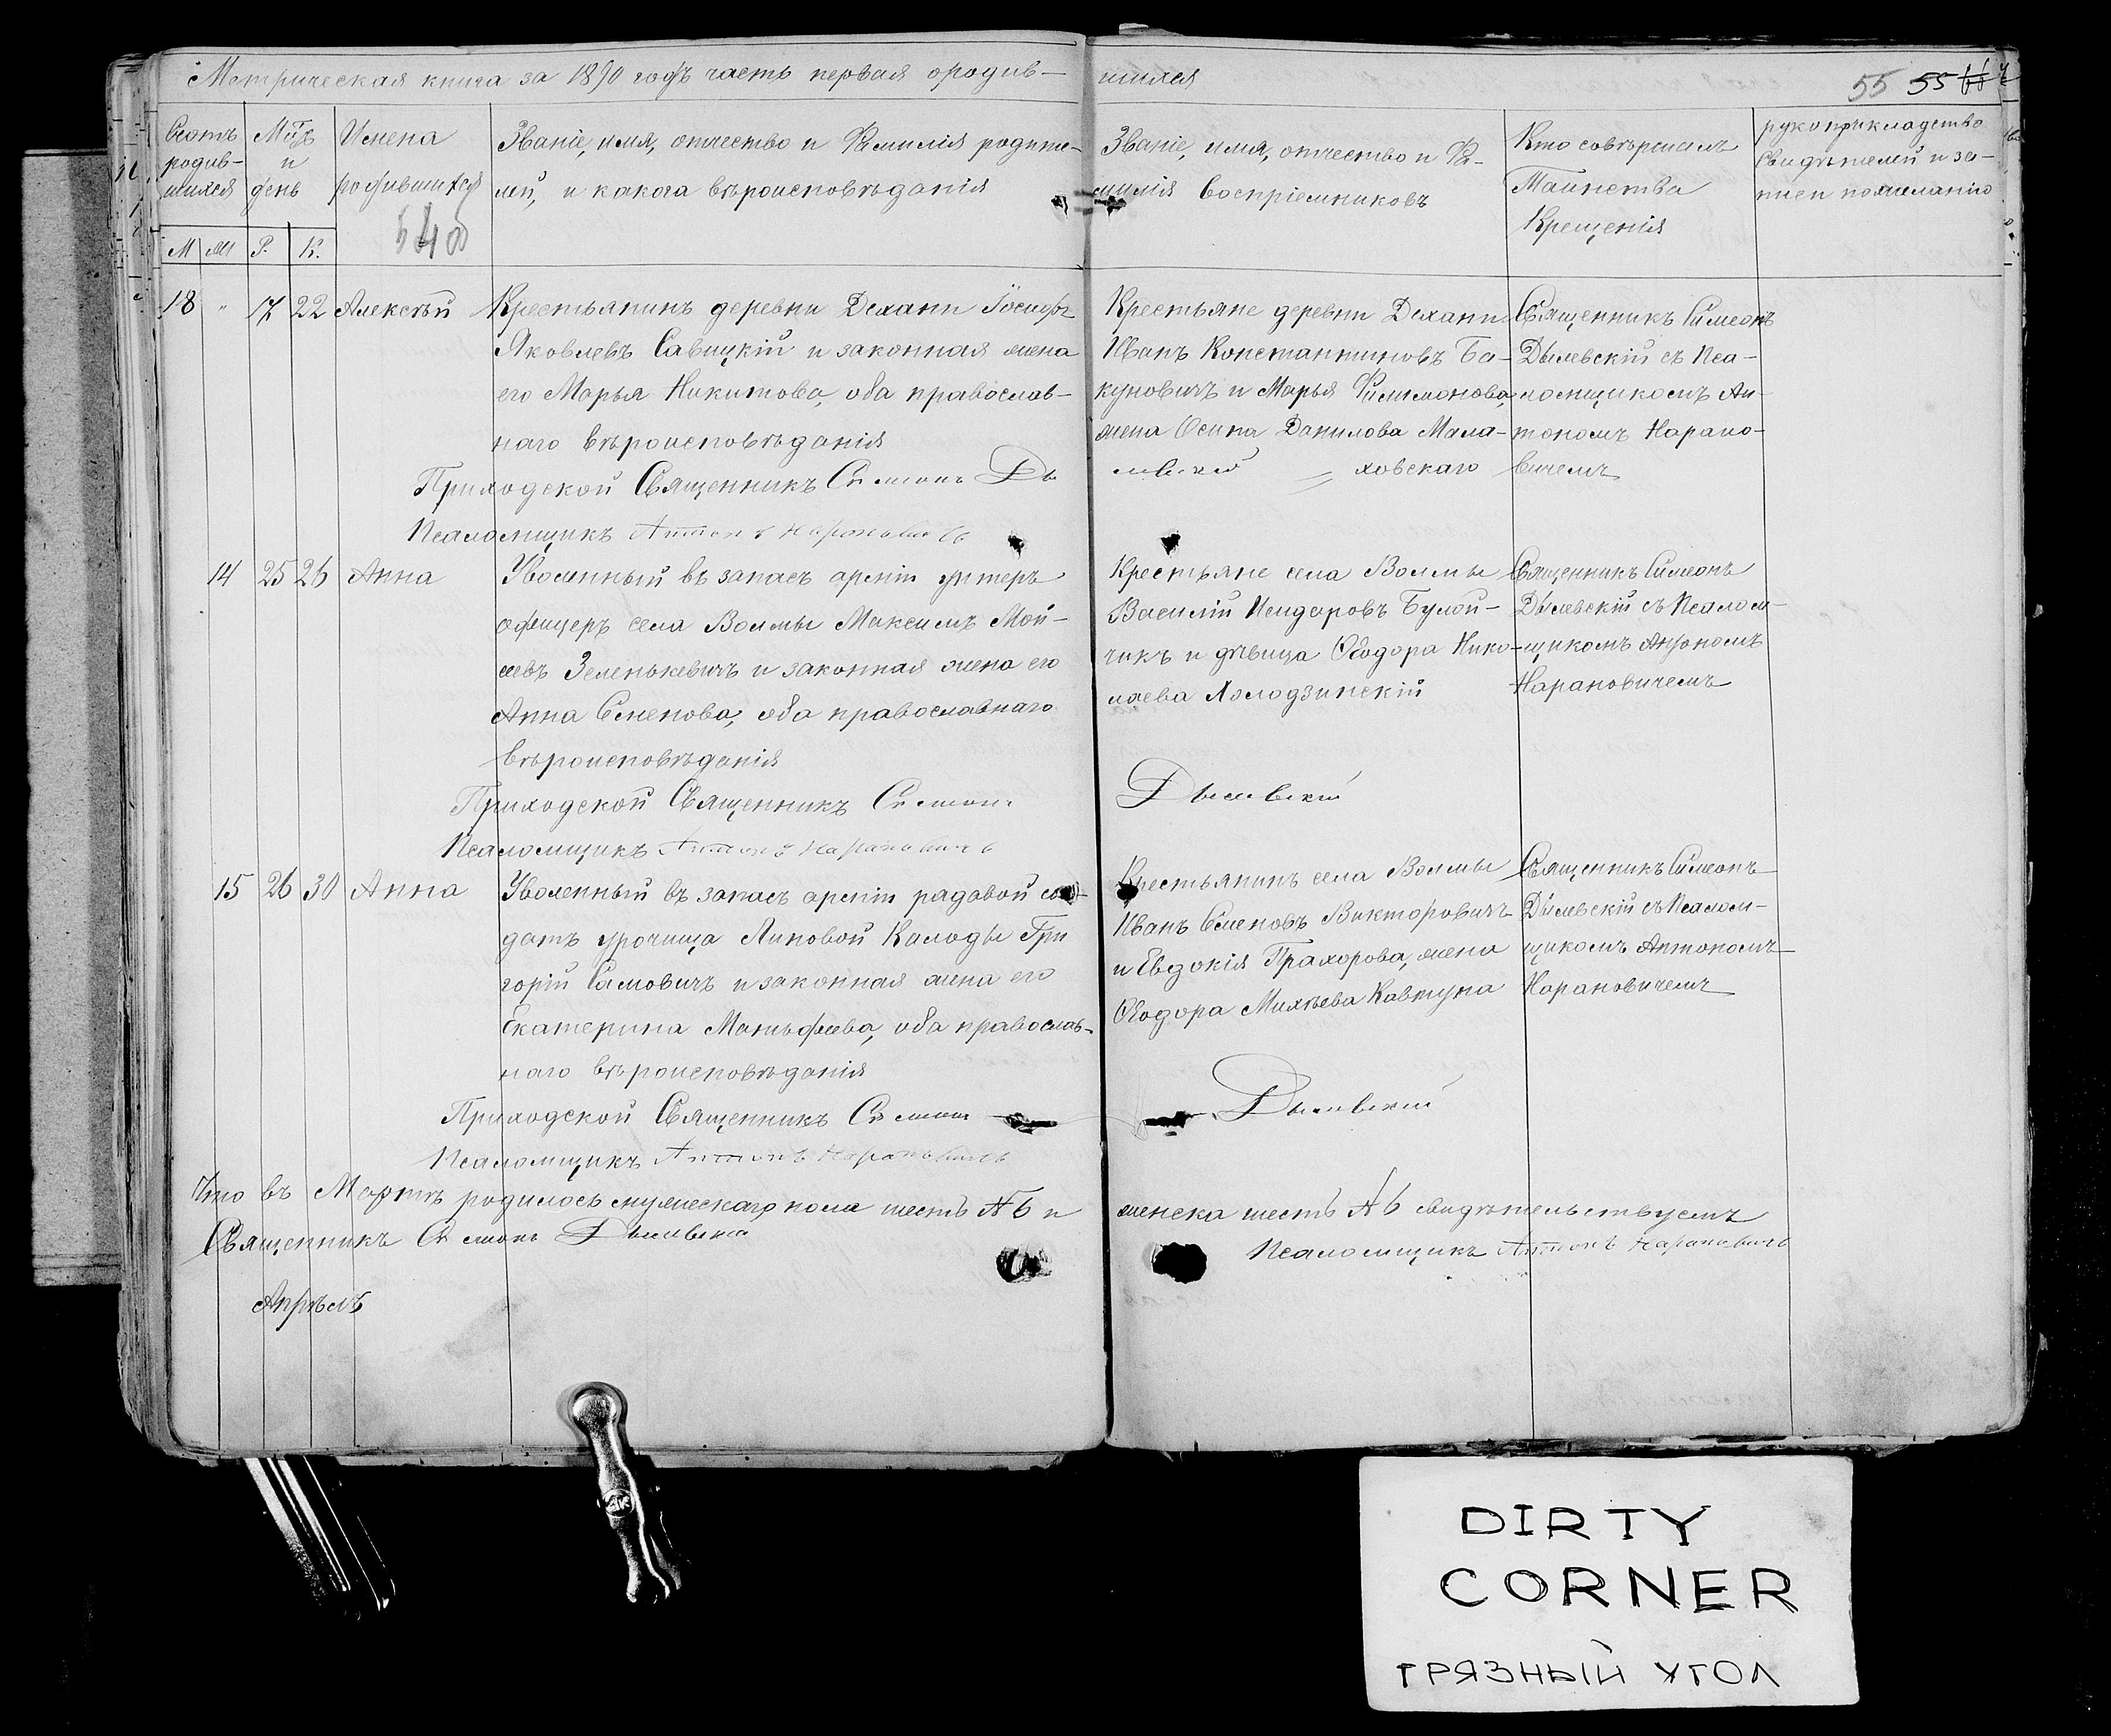 Метрическая книга за 1890 годъ часть первая о родив-
шихся
55 55
Счетъ родив-шихся
Мѣц. и день
Имена родившихся
Званіе, имя, отчество и Фамилія родите-
лей, и какога вѣроисповѣданія
Званіе, имя, отчество и Фа-
милія воспріемниковъ
Кто совершилъ
Таинство
Крещенія
рукоприкладство
свидѣтелей и за-
писи по желанію
М М Р. К.
540
18 " 17 22 Алексѣй
Крестьянинъ деревни Дехани Іосифъ
Яковлевъ Савицкій и законная жена
его Марья Никитова, оба православ-
наго вѣроисповѣданія
Крестьяне деревни Дехани
Иванъ Константиновъ Ба-
куновичъ и Марья Филимонова,
жена Осипа Данилова Мала-
ховскаго
Священникъ Симеонъ
Дылевскій съ Пса-
ломщикомъ Ан-
тономъ Нарано-
вичемъ
Приходской Священникъ Симеонъ Дылевскій
Псаломщикъ Антонъ Нарановичъ
14 25 26 Анна
Уволенный въ запасъ арміи унтеръ
офицеръ села Волмы Максимъ Мой-
сеевъ Зеленькевичъ и законная жена его
Анна Семенова, оба православнаго
вѣроисповѣданія
Крестьяне села Волмы
Василій Исидоровъ Булой-
чикъ и дѣвица Ѳеодора Нико-
лаева Холодзинскій
Священникъ Симеонъ
Дылевскій съ Псалом-
щикомъ Антономъ
Нарановичемъ
Приходской Священникъ Симеонъ Дылевскій
Псаломщикъ Антонъ Нарановичъ
15 26 30 Анна
Уволенный въ запасъ арміи радавой сол-
датъ урочища Липовой Колоды Гри
горій Самовичъ и законная жена его
Екатерина Матьфеева, оба православ-
наго вѣроисповѣданія
Крестьянинъ села Волмы
Иванъ Семеновъ Викторовичъ
и Евдокія Прахорова, жена
Ѳеодора Михѣева Кавтуна
Священникъ Симеонъ
Дылевскій съ Псалом-
щикомъ Антономъ
Нарановичемъ
Приходской Священникъ Симеонъ Дылевскій
Псаломщикъ Антонъ Нарановичъ
Что въ Мартѣ родилось мужескаго пола шесть № 6 и женска шесть № 6 свидѣтельствуемъ
Священникъ Симеонъ Дылевскій
Псаломщикъ Антонъ Нарановичъ
Апрѣль
DIRTY
CORNER
ГРЯЗНЫЙ УГОЛ